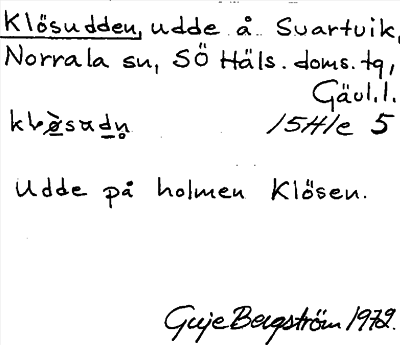 Klösudden, udde å Svartvik,
Norrala sn, SÖ Häls. doms. tg,
Gävl. l.
15H1e 5
Udde på holmen Klösen.
Guje Bergström 1972.